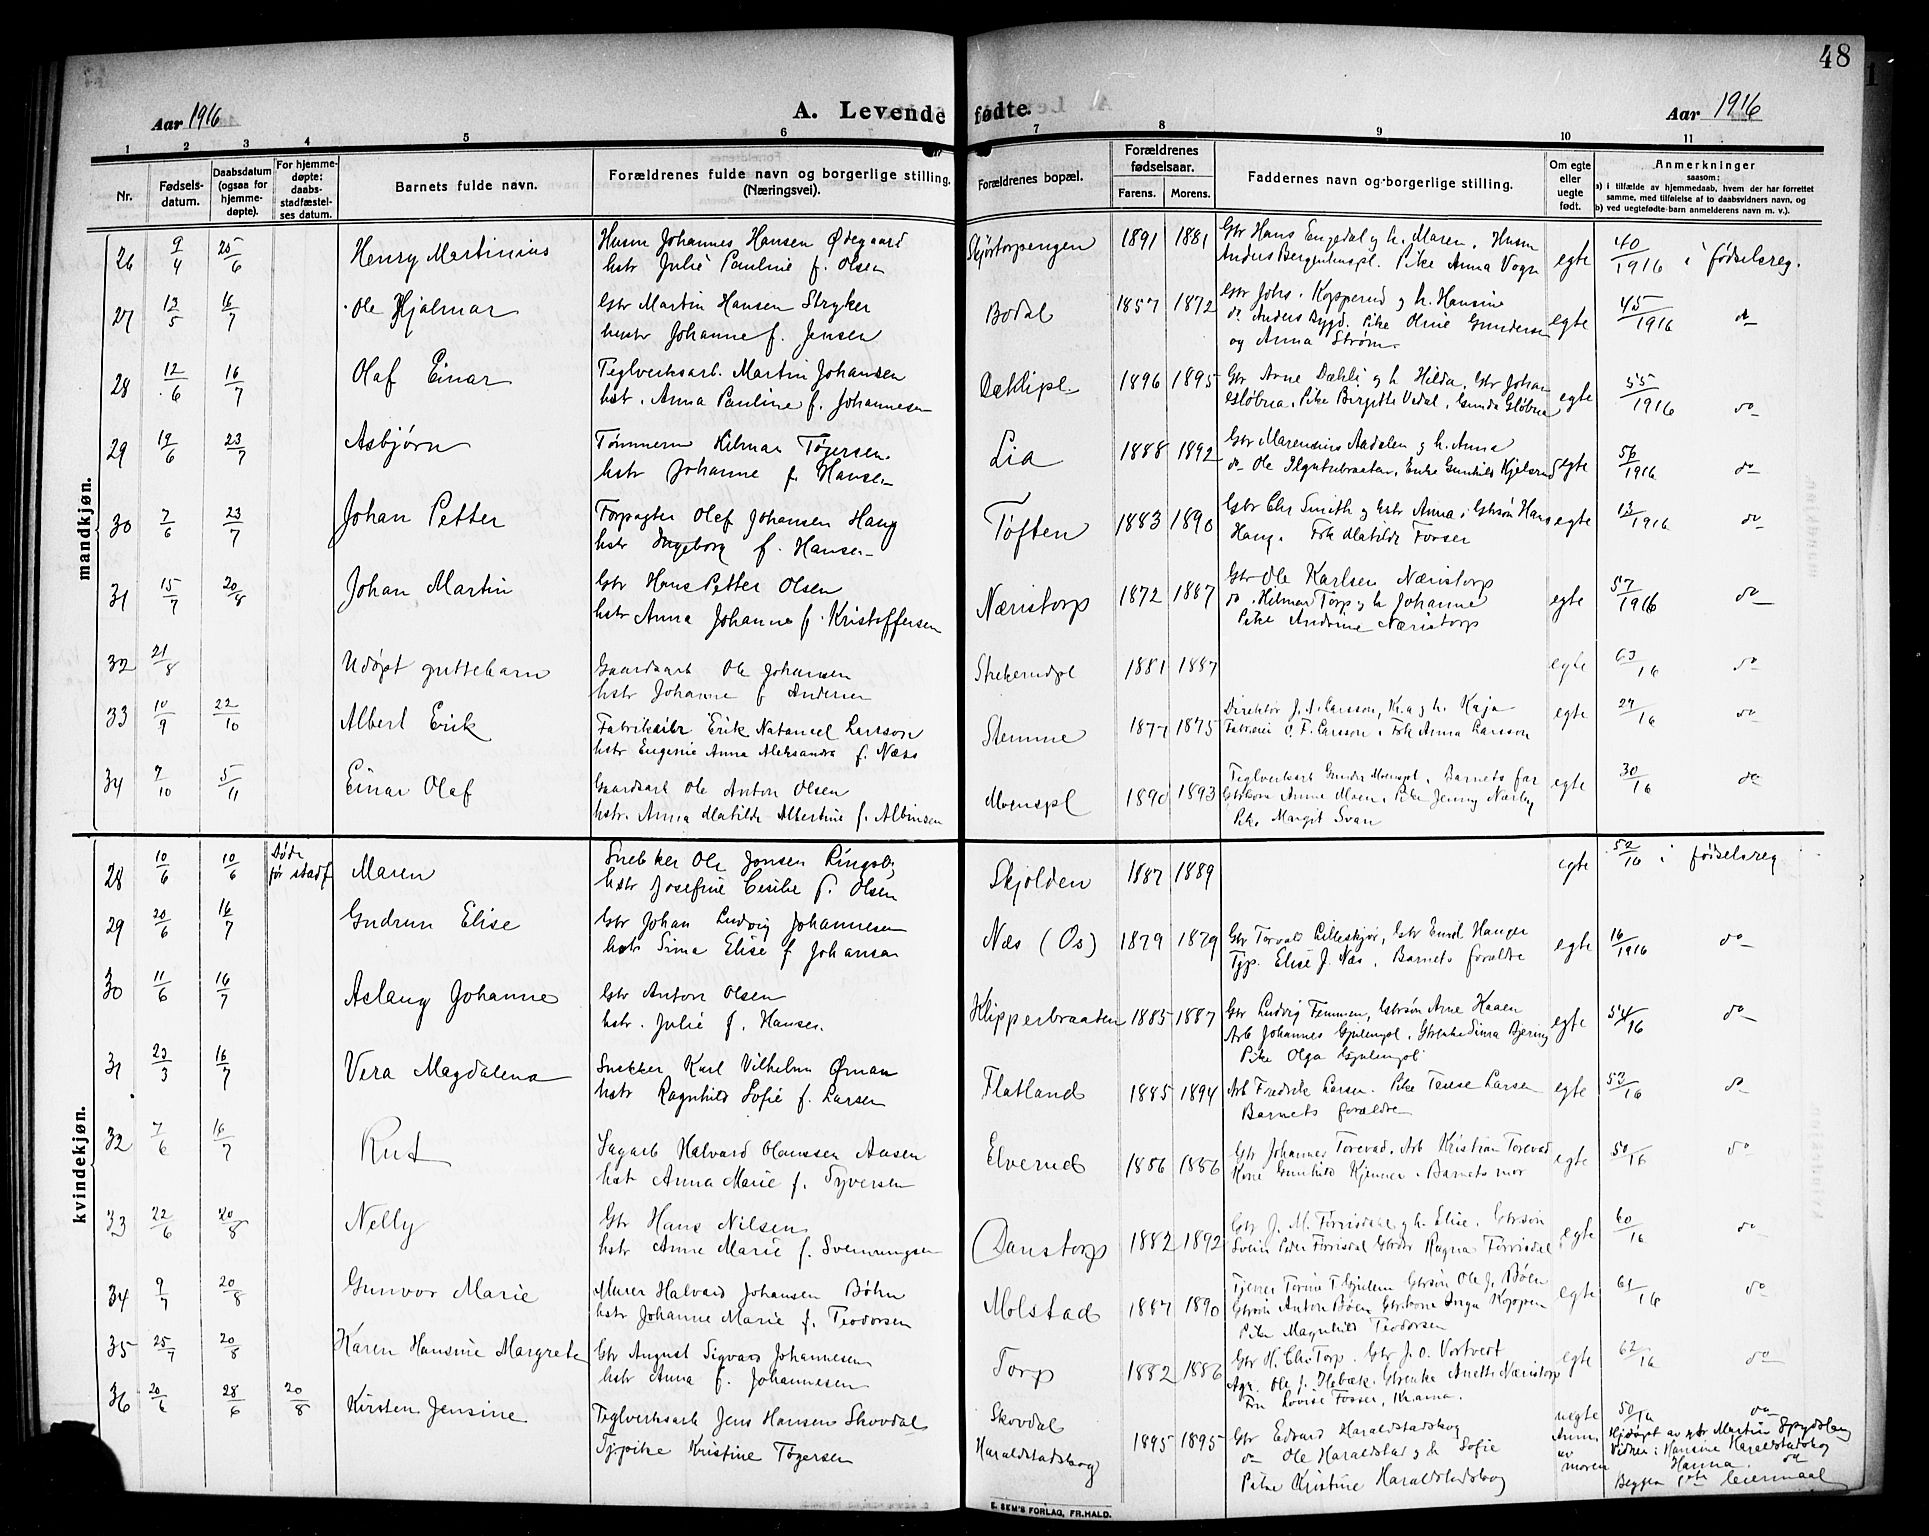 48
Aar 1916
A. Levende fødte.
Aar 1916
1 2 3 4 5 6 7 8 9 10 11
Nr.
Fødsels-
datum.
Daabsdatum
(ogsaa for
hjemme-
døpte).
For hjemme-
døpte:
daabs-
stadfæstel-
ses datum.
Barnets fulde navn.
Forældrenes fulde navn og borgerlige stilling.
(Næringsvei).
Forældrenes bopæl.
Forældrenes
fødselsaar.
Farens. Morens.
Faddernes navn og borgerlige stilling.
Om egte
eller
uegte
født.
Anmerkninger
saasom:
a) i tilfælde av hjemmedaab, hvem der har forrettet
samme, med tilføielse af to daabsvidners navn, og
b) ved uegtefødte barn anmelderens navn m. v.).
mandkjøn.
26 9/4 25/6 Henry Martinius
Husm Johannes Hansen Ødegaard
hstr Julie Pauline f. Olsen
Skjørtorpengen 1891 1881
Gbr Hans Engedal og h. Maren. Husm
Anders Bergenhuspl. Pike Anna Vogn
egte 40/1916 i fødselsreg.
27 12/5 16/7 Ole Hjalmar
Gbr Martin Hansen Stryker
hustr Johanne f. Jensen
Bodal 1857 1872
Gbr Johs. Kopperud og h. Hansine
do Anders Bygd. Pike Oline Gundersen
og Anna Strøm.
egte 45/1916 do
28 12/6 16/7 Olaf Einar
Teglverksarb. Martin Johansen
hst. Anna Pauline f. Johannesen
Dæhlipl. 1896 1895
Gbr Arne Dæhli og h Hilda. Gbr Johan
Gløbua. Pike Birgitte Vedal, Gunda Gløbua
egte 55/1916 do
29 19/6 23/7 Asbjørn
Tømmerm Hilmar Tøgersen.
hstr Johanne f. Hansen
Lia 1888 1892
Gbr Marensius Aadalen og h. Anna
egte 56/1916 do
30 7/6 23/7 Johan Petter
Forpagter Olaf Johansen Haug
hstr Ingeborg f. Hansen
Tøften 1883 1890
Gbr Chr Smith og hstr Anna. Gbrsøn Hans
Haug. Frk Matilde Fosser
egte 13/1916 do
31 15/7 20/8 Johan Martin
Gbr Hans Petter Olsen
hstr Anna Johanne f. Kristoffersen
Næristorp 1872 1887
Gbr Ole Karlsen Næristorp
do. Hilmar Torp og h Johanne
Pike Andrine Næristorp
egte 57/1916 do
32 21/8 Udøpt guttebarn
Gaardsarb Ole Johansen
hstr Johanne f Andersen
Strekerudpl 1881 1887
egte 63/16 do
33 10/9 22/10 Albert Erik
Fabrikeier Erik Natanael Larsson
hstr Eugenie Anna Aleksandra f. Næss
Stemme 1877 1875
Direktør J. A. Larsson, K.a og h. Kaja
Fabrikeier C. F. Larsson. Frk Anna Larsson
egte 29/16 do
34 7/10 5/11 Einar Olaf
Gaardsarb Ole Anton Olsen
hstr. Anna Matilde Albertine f. Albinsen
Moenspl 1890 1893
Teglverksarb Gunder Moenspl. Barnets far
Gbrkone Anna Moen. Pike Jenny Nærby
Pike Margit Svan
egte 30/16 do
kvindekjøn.
28 10/6 10/6 Døde før stadf. Maren
Snekker Ole Jonsen Ringsby
hstr Josefine Cecilie f. Olsen
Skjolden 1887 1889
egte 52/16 i fødselsreg
29 20/6 16/7 Gudrun Elise
Gbr Johan Ludvig Johannesen
hstr Sina Elise f Johansen
Næs (Os) 1879 1879
Gbr Torvald Lilleskjør, Gbr Emil Hanger
Tjp. Elise J. Næs. Barnets forældre
egte 16/1916 do
30 11/6 16/7 Aslaug Johanne
Gbr Anton Olsen
hstr. Julie f. Hansen.
Klipperbraaten 1885 1887
Gbr Ludvig Femmen, Gbrsøn Arne Haaen
Arb Johannes Gjulempl. Gbrenke Sina Bjering
Pike Olga Gjulempl
egte 54/16 do
31 23/3 16/7 Vera Magdalena
Snekker Karl Vilhelm Øman
hstr Ragnhild Sofie f. Larsen
Flatland 1885 1894
Arb Fredrik Larsen. Pike Terese Larsen
Barnets forældre
egte 53/16 do
32 7/6 16/7 Rut
Sagarb Halvard Olaussen Aasen
hst Anna Marie f. Syversen
Elverud 1886 1886
Gbr Johannes Torevad. Arb Kristian Torevad
Kone Gunhild Kjenner. Barnets mor
egte 50/16 do
33 22/6 20/8 Nelly
Gbr Hans Nilsen
hstr Anne Marie f. Svenningsen
Danstorp 1882 1892
Gbr J. M. Forrisdal og h. Elise. Gbrsøn
Svein Peder Forrisdal Gbrdr Ragna Forrisdal
egte 60/16 do
34 9/7 20/8 Gunvor Marie
Murer Halvard Johansen Bøhn
hstr Johanne Marie f. Teodorsen
Molstad 1887 1890
Tjener Torine T Gjulem Gbrsøn Ole J. Bøen
Gbrsøn Anton Bøen Gbrkone Inga Koppen
Pike Magnhild Teodorsen
egte 61/16 do
35 25/7 20/8 Karen Hansine Margrete
Gbr August Sigvard Johannesen
hstr Anna f. Johannesen
Torp 1882 1886
Gbr H. Chr Torp. Gbr J. O. Vortvedt
Agr. Ole J. Hebæk. Gbrenke Anette Næristorp
Fru Lovise Fosser, Krania.
egte 62/16 do
36 20/6 28/6 20/8 Kirsten Jensine
Teglverksarb Jens Hansen Skovdal
Tjpike Kristine Tøgersen
Skovdal
Haraldstadskog 1895 1895
Gbr Edvard Haraldstadskog
do Ole Haraldstad og h Sofie
Pike Kristine Haraldstadskog
uegte
Anm.
av
moren
50/16 do
Hjdøpt av gbr Martin Spydslaug
Vidner: Hansine Haraldstadskog
Hanna do
Begges 1ste leiermaal
E. SEM'S FORLAG, FR.HALD.